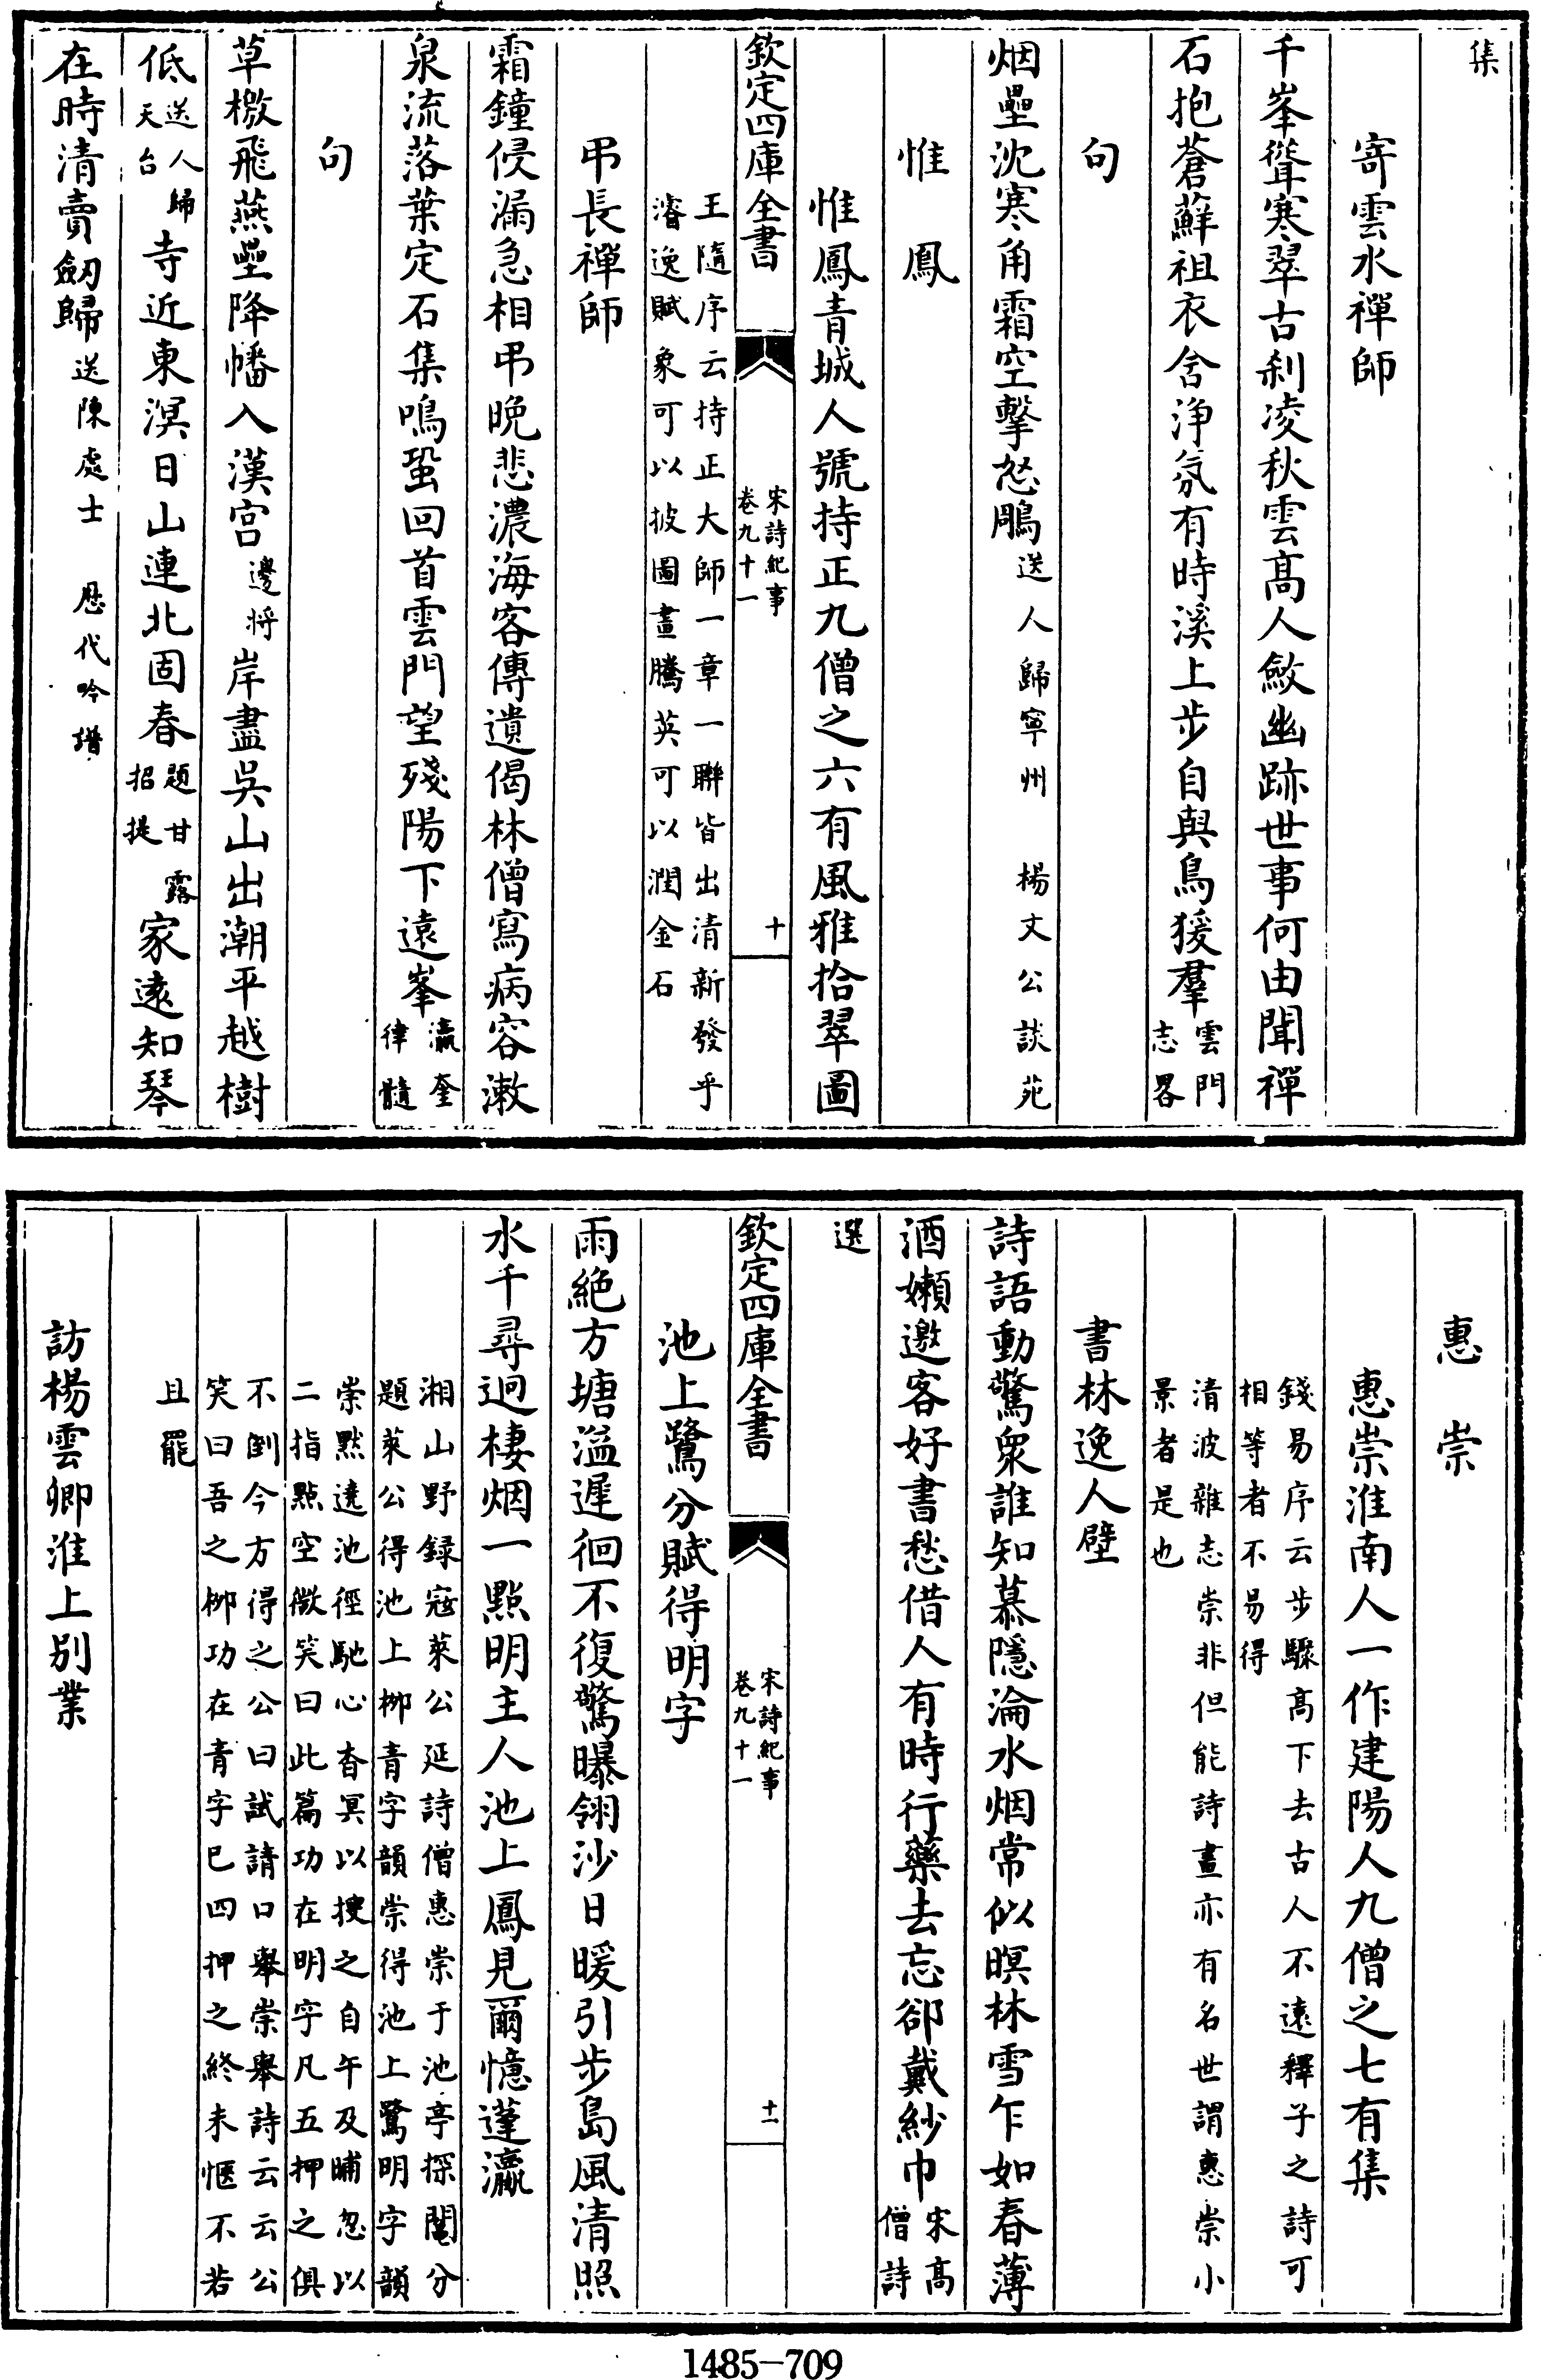 集
寄雲水禪師
千峯聳寒翠古刹凌秋雲髙人斂幽跡世事何由聞禪
石抱蒼蘚祖衣含浄氛有時溪上步自與鳥猨羣雲門志畧
句
烟壘沈寒角霜空擊怒鵰送人歸寧州 楊文公談苑
惟鳳
惟鳳青城人號持正九僧之六有風雅拾翠圖
欽定四庫全書 宋詩紀事卷九十一 十
王隨序云持正大師一章一聯皆出清新發乎
濬逸賦象可以披圖畫騰英可以潤金石
弔長禪師
霜鐘侵漏急相弔晚悲濃海客傳遺偈林僧寫病容漱
泉流落葉定石集鳴蛩回首雲門望殘陽下遠峯瀛奎律髓
句
草檄飛燕壘降幡入漢宮邊將岸盡吳山出潮平越樹
低送人歸天台寺近東溟日山連北固春題甘露招提家遠知琴
在時清賣劒歸送陳處士 歴代吟譜
惠崇
惠崇淮南人一作建陽人九僧之七有集
錢易序云步驟髙下去古人不遠釋子之詩可
相等者不易得
清波雜志崇非但能詩畫亦有名世謂惠崇小
景者是也
書林逸人壁
詩語動驚衆誰知慕隱淪水烟常似暝林雪乍如春薄
酒嬾邀客好書愁借人有時行藥去忘卻戴紗巾宋髙僧詩
選
欽定四庫全書 宋詩紀事卷九十一 十一
池上鷺分賦得明字
雨絶方塘溢遲徊不復驚曝翎沙日暖引步島風清照
水千尋迥棲烟一點明主人池上鳳見爾憶蓬瀛
湘山野録寇萊公延詩僧惠崇于池亭探鬮分
題萊公得池上栁青字韻崇得池上鷺明字韻
崇黙遶池徑馳心杳冥以搜之自午及晡忽以
二指點空微笑曰此篇功在明字凡五押之俱
不倒今方得之公曰試請口舉崇舉詩云云公
笑曰吾之栁功在青字已四押之終未愜不若
且罷
訪楊雲卿淮上別業
1485-709